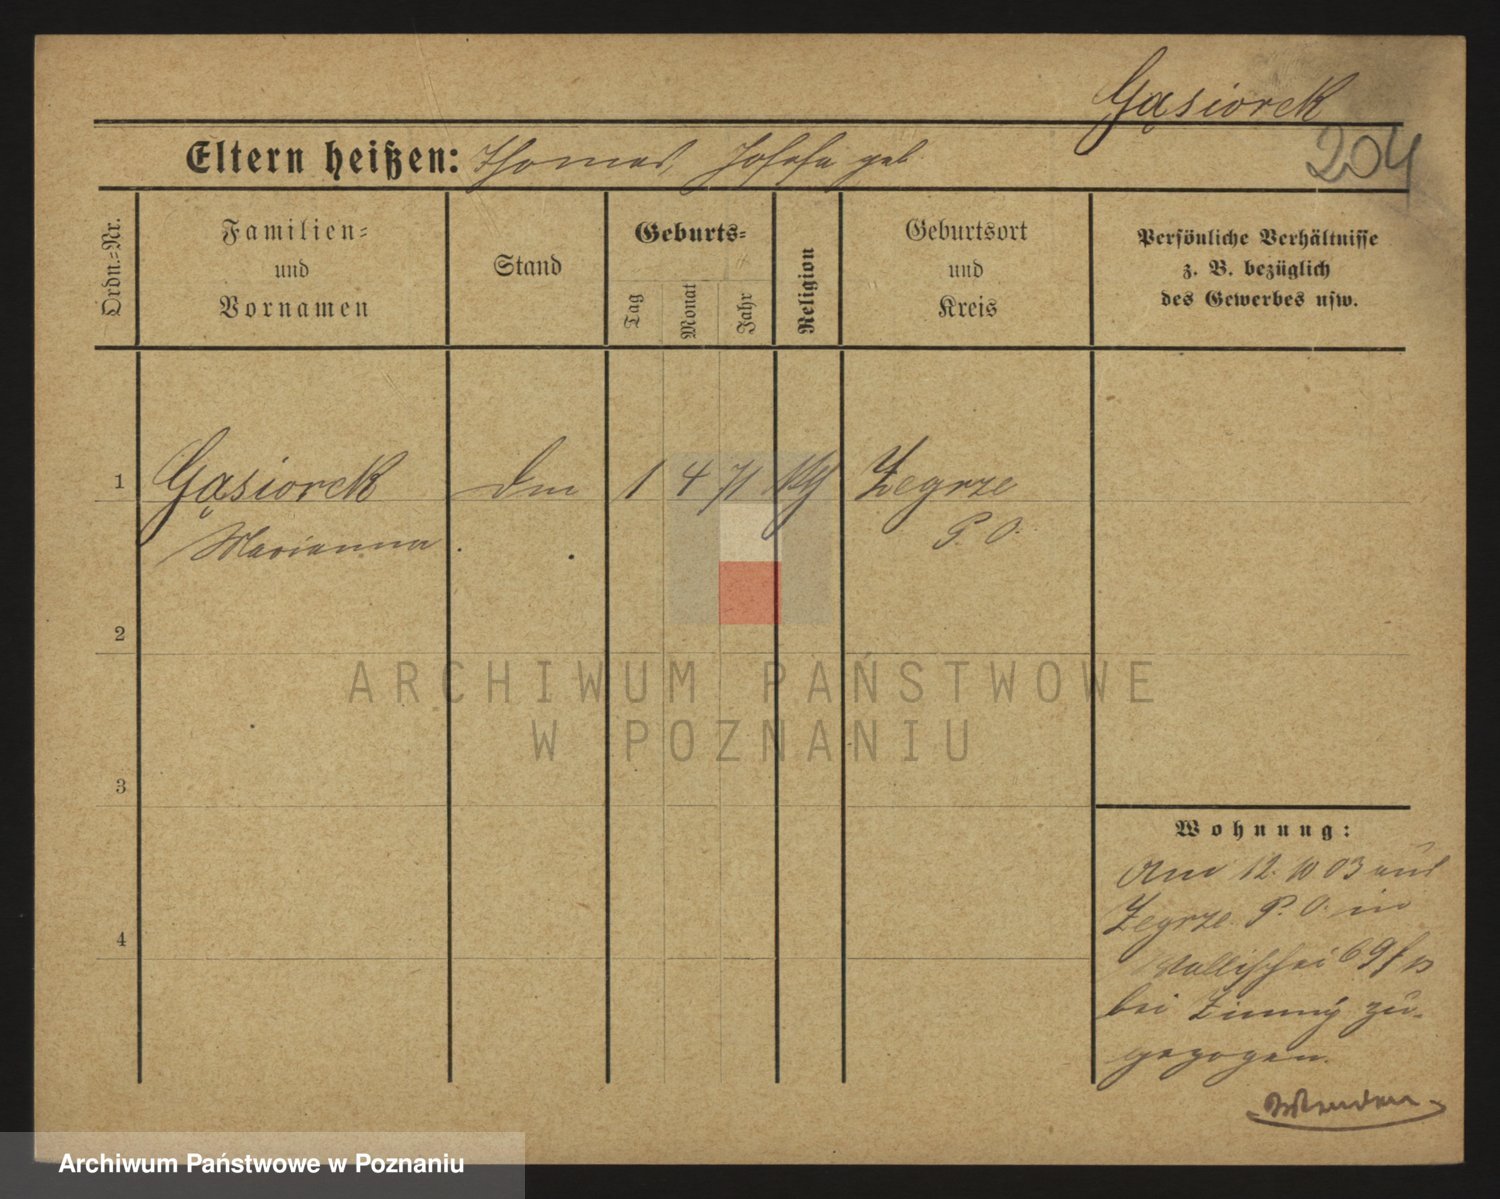 Gąsiorek
204
Eltern heißen: Thomas, Josefa geb
Ordn.-Nr.
Familien-
und
Vornamen
Stand
Geburts-
Tag
Monat
Jahr
Religion
Geburtsort
und
Kreis
Persönliche Verhältnisse
z. B. bezüglich
des Gewerbes usw.
1
Gąsiorek
1 4 71
Zegrze
Marianna
P. O.
2
3
4
ARCHIWUM PAŃSTWOWE
W POZNANIU
Wohnung:
Am 12. 10 03 aus
Zegrze P. O. in
Wallischei 69
bei Zimny zu-
gezogen.
Wenden
Archiwum Państwowe w Poznaniu